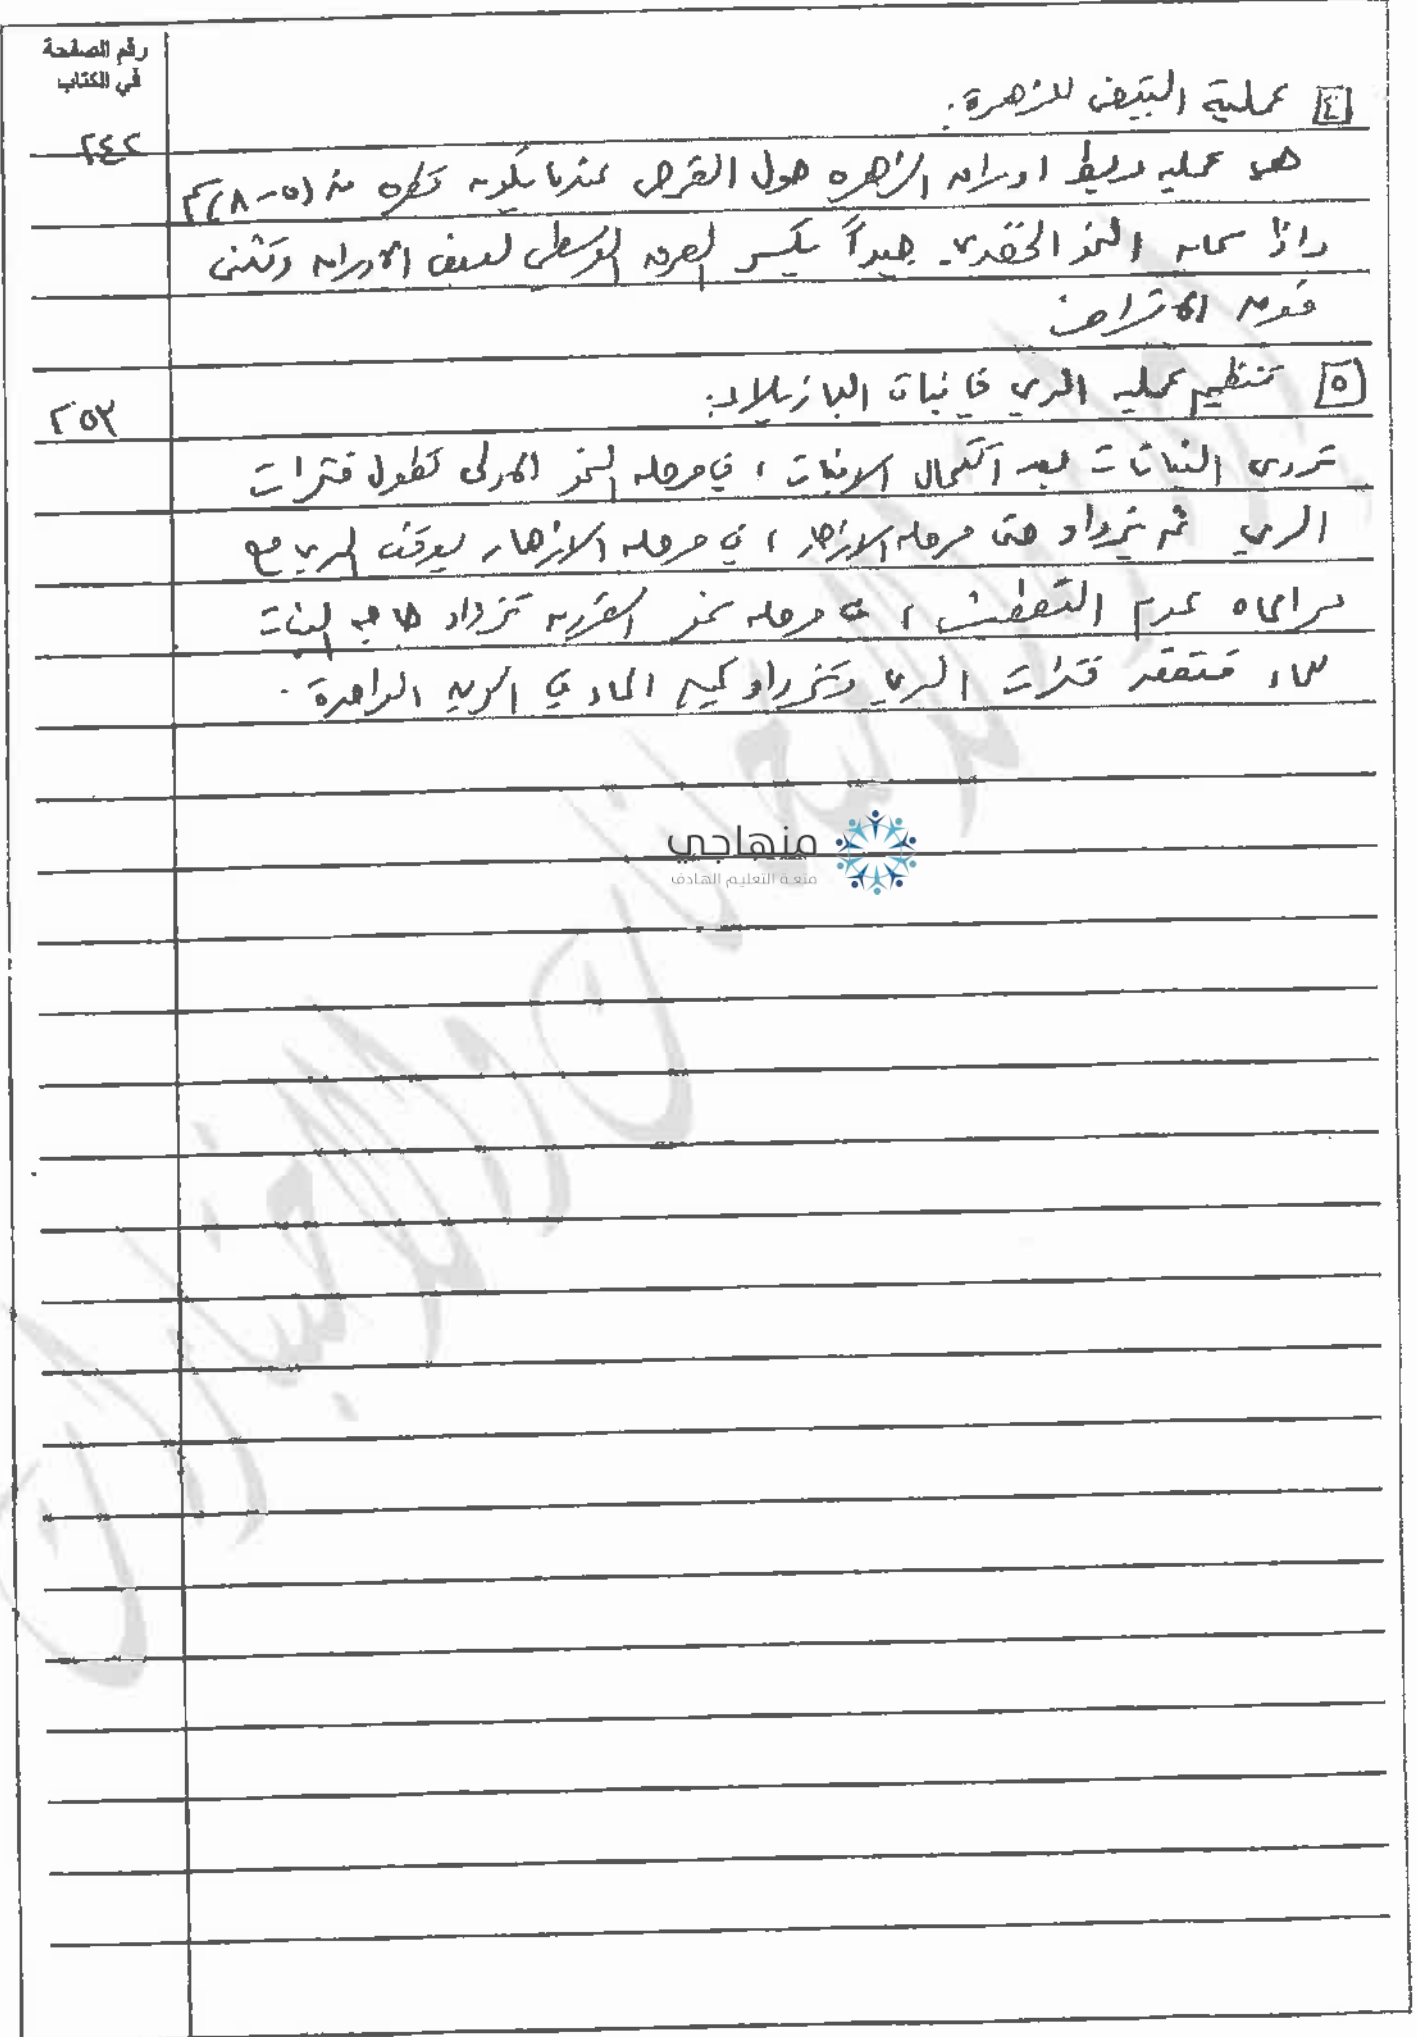 رقم الصفحة
في الكتاب
٤ عملية التبيض للزهرة:
٢٤٢
هي عمليه ربط اوراق الزهره حول القرص عندما يكون قطره من (٥-٨) سم
واذا كان النمو الخضري جيداً يكسر العرق الوسطي لبعض الاوراق وتثنى
فوق الاقراص
٥ تنظيم عمليه الري في نبات البازيلاء:
٢٥٣
تروى النباتات بعد اكتمال الانبات ، في مرحله النمو الاولى تطول فترات
الري ثم تزداد حتى مرحله الازهار ، في مرحله الازهار يوقف الري مع
مراعاه عدم التعطيش ، في مرحله نمو القرون تزداد حاجه النبات
للماء فتقصر فترات الري وتزداد كميه الماء في الريه الواحدة .
منهاجي
متعة التعليم الهادف